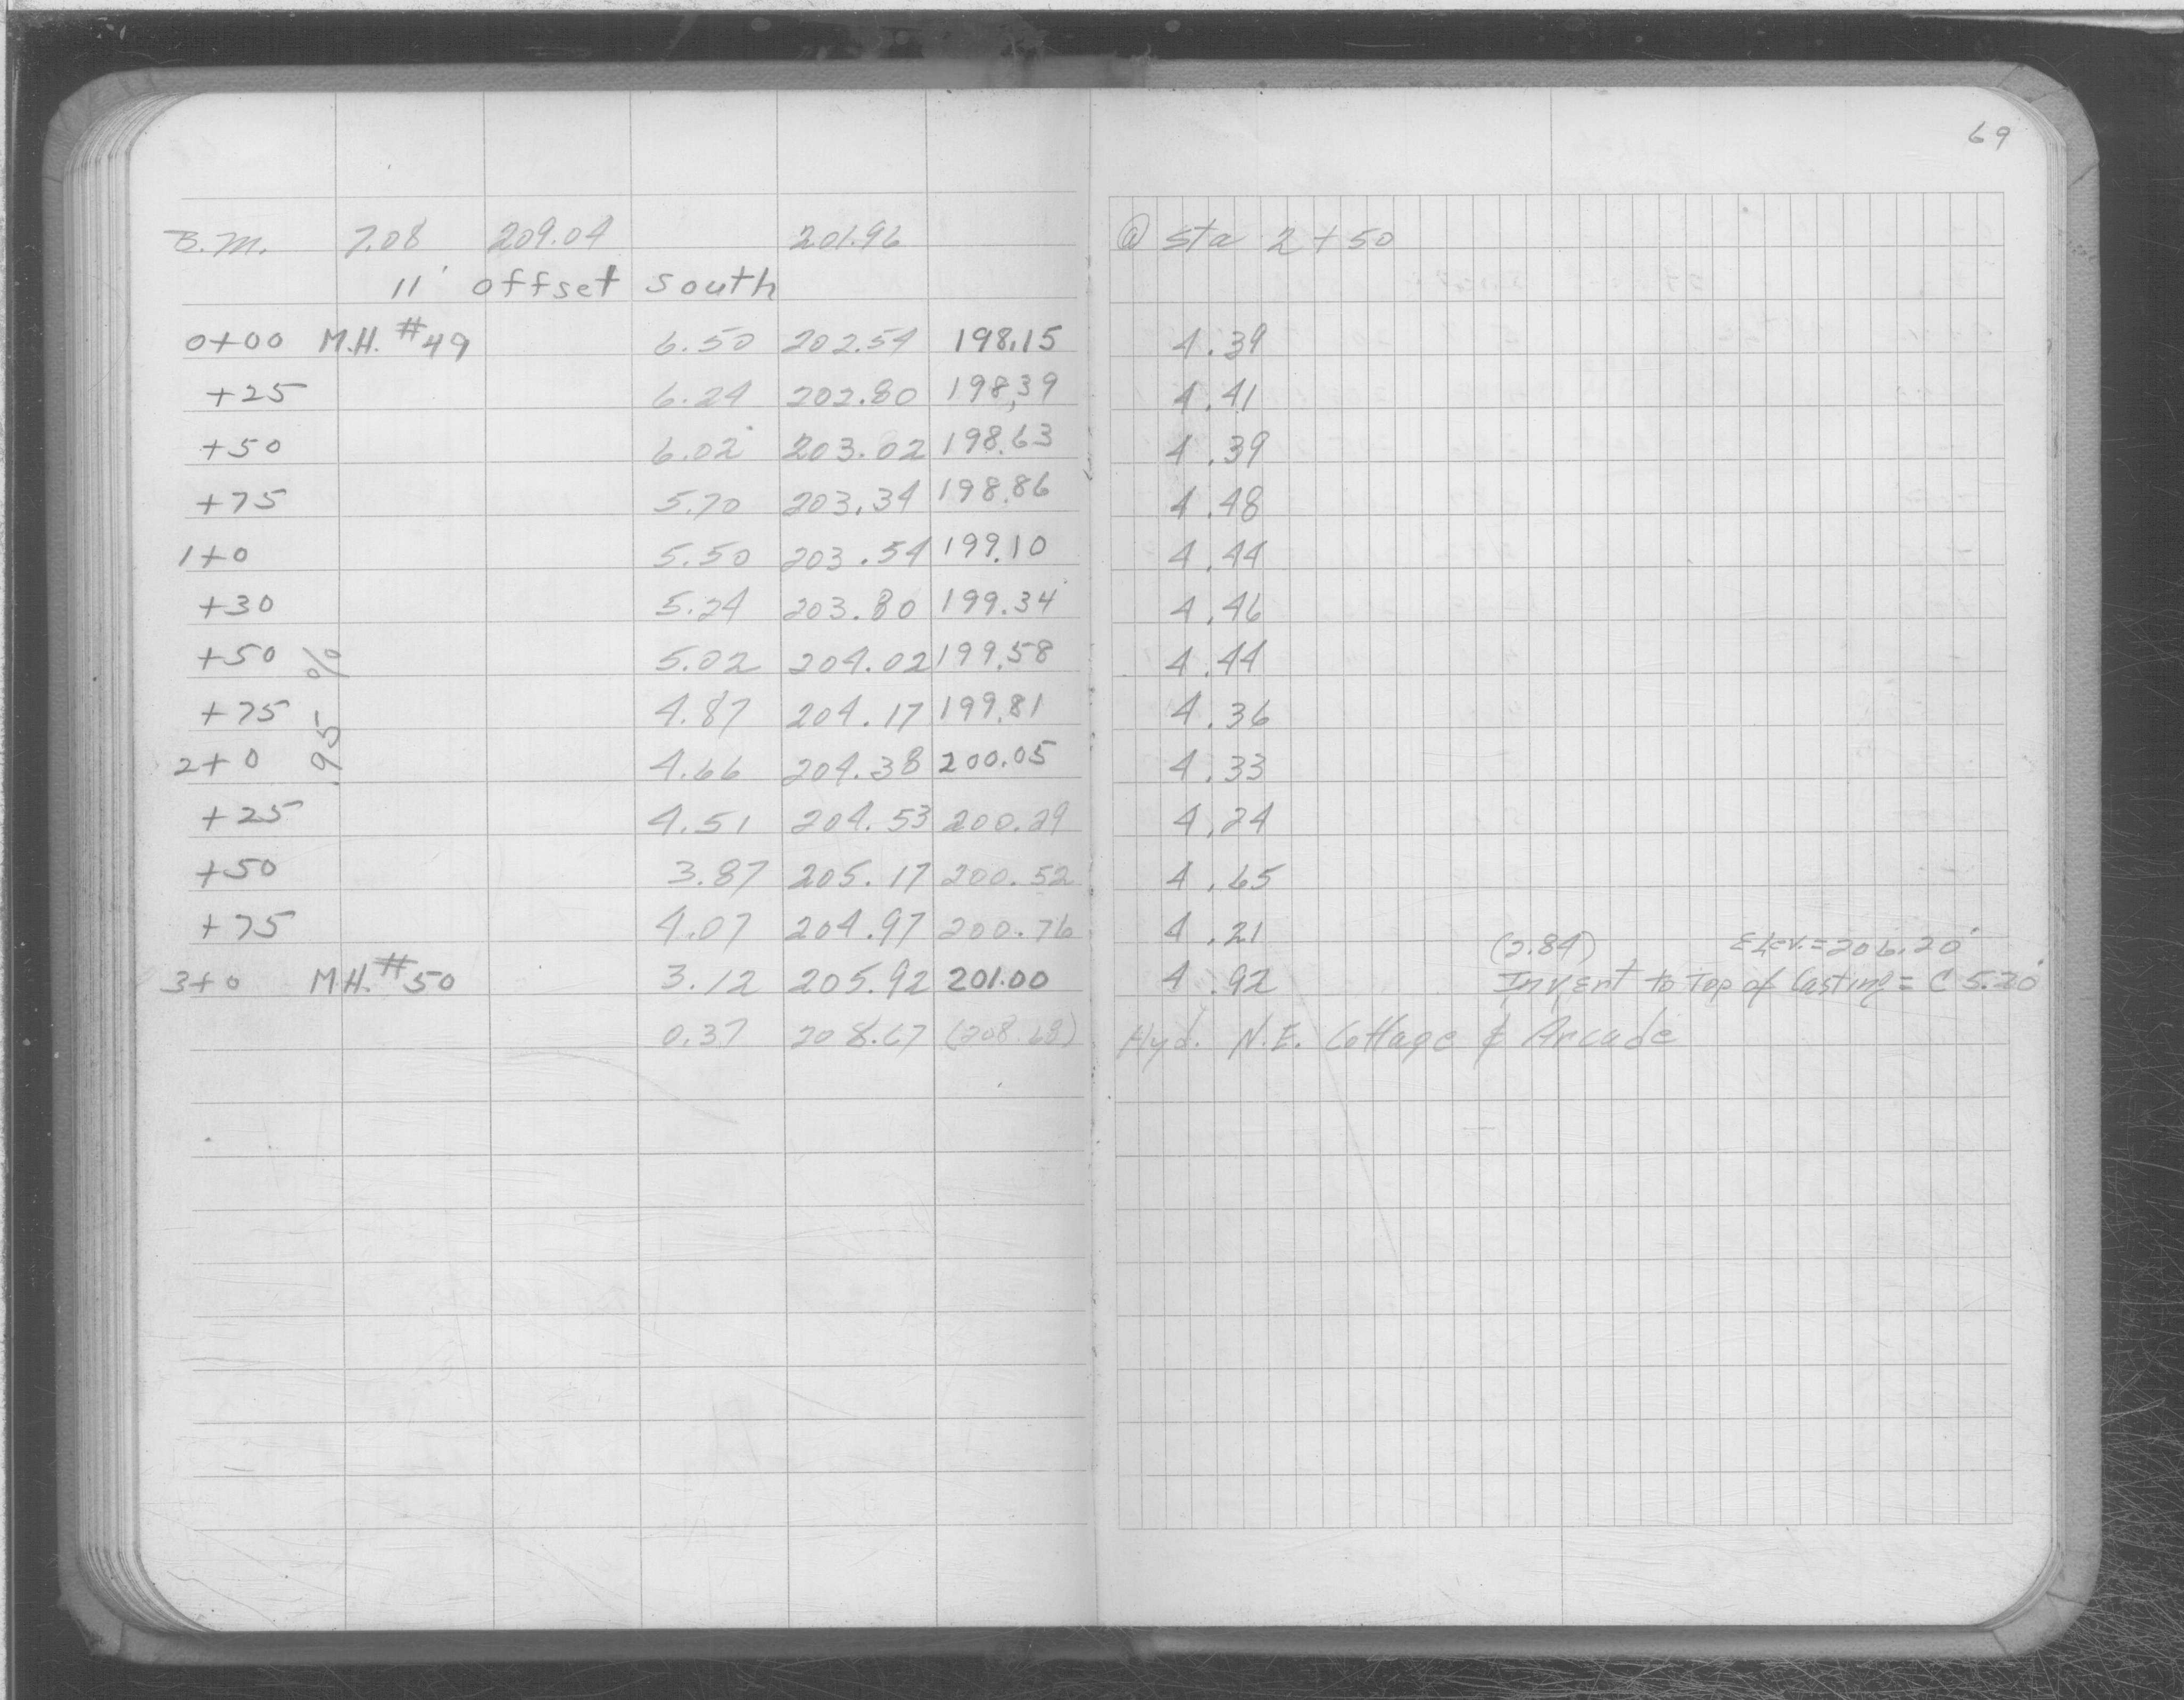 69
B.M. 7.08 209.04 201.96 @ Sta 2+50
11' offset south
0+00 M.H. #49 6.50 202.54 198.15 4.39
+25 6.24 202.80 198.39 4.41
+50 6.02 203.02 198.63 4.39
+75 5.70 203.34 198.86 4.48
1+0 5.50 203.54 199.10 4.44
+30 5.24 203.80 199.34 4.46
+50 5.02 204.02 199.58 4.44
+75 4.87 204.17 199.81 4.36
.95%
2+0 4.66 204.38 200.05 4.33
+25 4.51 204.53 200.29 4.24
+50 3.87 205.17 200.52 4.65
+75 4.07 204.97 200.76 4.21
(2.84) Elev.=206.20'
3+0 M.H. #50 3.12 205.92 201.00 4.92 Invert to Top of Casting = C 5.20'
0.37 208.67 (208.68) Hyd. N.E. Cottage & Arcade